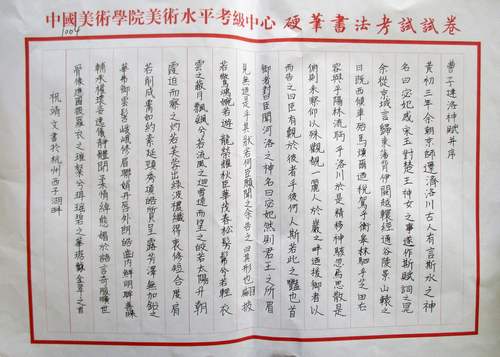 中國美術學院美術水平考級中心 硬筆書法考試試卷
1004
曹子建洛神賦并序
黃初三年余朝京師還濟洛川古人有言斯水之神
名曰宓妃感宋玉對楚王神女之事遂作斯賦詞之
余從京域言歸東藩背伊闕越轘經通谷陵景山
日既西傾車殆馬煩爾迺稅駕乎蘅皋秣駟乎芝田
容與乎陽林流眄乎洛川於是精移神駭忽焉思散
俯則未察仰以殊觀覩一麗人於巖之畔迺援御者以
而告之曰臣有觀於彼者乎彼何人斯若此之豔也
御者對曰臣聞河洛之神名曰宓妃然則君王之所
見無迺是乎其狀若何臣願聞之余告之曰其形也翩
若驚鴻婉若遊龍榮耀秋菊華茂春松髣髴兮若輕
雲之蔽月飄颻兮若流風之迴雪遠而望之皎若太陽升朝
霞迫而察之灼若芙蕖出淥波穠纖得衷修短合度肩
若削成腰如約素延頸秀項皓質呈露芳澤無加鉛
華弗御雲髻峩峩修眉聯娟丹唇外朗皓齒內鮮明眸善睞
輔承權瓌姿逸儀靜體閑柔情綽態媚於語言奇服曠世
骨像應圖披羅衣之璀粲兮珥瑤碧之華琚戴金翠之首
祝靖文書於杭州西子湖畔